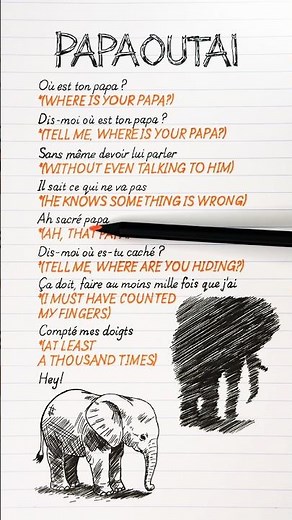 PAPAOUTAI
Où est ton papa ?
*(WHERE IS YOUR PAPA?)
Dis-moi où est ton papa ?
*(TELL ME, WHERE IS YOUR PAPA?)
Sans même devoir lui parler
*(WITHOUT EVEN TALKING TO HIM)
Il sait ce qui ne va pas
*(HE KNOWS SOMETHING IS WRONG)
Ah sacré papa
*(AH, THAT
Dis-moi où es-tu caché ?
*(TELL ME, WHERE ARE YOU HIDING?)
Ça doit, faire au moins mille fois que j'ai
*(I MUST HAVE COUNTED
MY FINGERS)
Compté mes doigts
*(AT LEAST
A THOUSAND TIMES)
Hey!